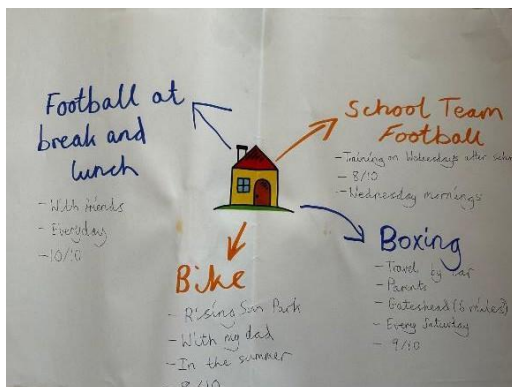 Football at
break and
lunch
- With friends
- Everyday
- 10/10
School Team
Football
- Training on Wednesdays after school
- 8/10
- Wednesday mornings
Bike
- Rising Sun Park
- With my dad
- In the summer
- 8/10
Boxing
- Travel by car
- Parents
- Gateshead (6 miles)
- Every Saturday
- 9/10